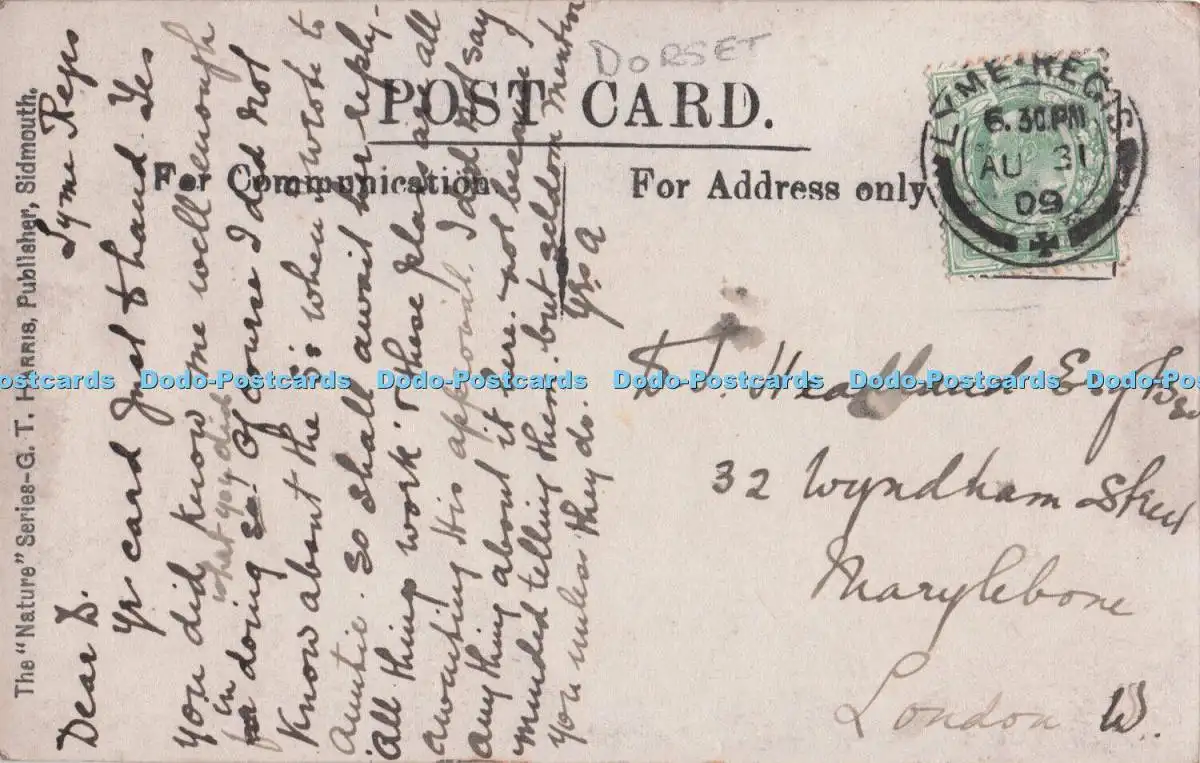 DORSET
POST CARD.
For Communication
For Address only
LYME REGIS
6.30PM
AU 31
09
The "Nature" Series-G. T. HARRIS, Publisher, Sidmouth.
Lyme Regis
Dear D.
Yr card just to hand. Yes
you did know me well enough
in what you did
doing so! Of course I did not
know about the 5: when wrote to
Auntie. so shall await her reply-
All things work. & these plans are all
awaiting His approval. I did not say
anything about it here. not because I
minded telling them. but seldom mention
you unless they do. Yrs A
D. J. Headland Esq
32 Wyndham Street
Marylebone
London W.
Dodo-Postcards Dodo-Postcards Dodo-Postcards Dodo-Postcards Dodo-Postcards